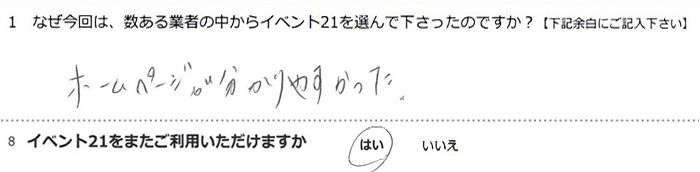 1 なぜ今回は、数ある業者の中からイベント21を選んで下さったのですか？【下記余白にご記入下さい】
ホームページが分かりやすかった。
8 イベント21をまたご利用いただけますか はい いいえ